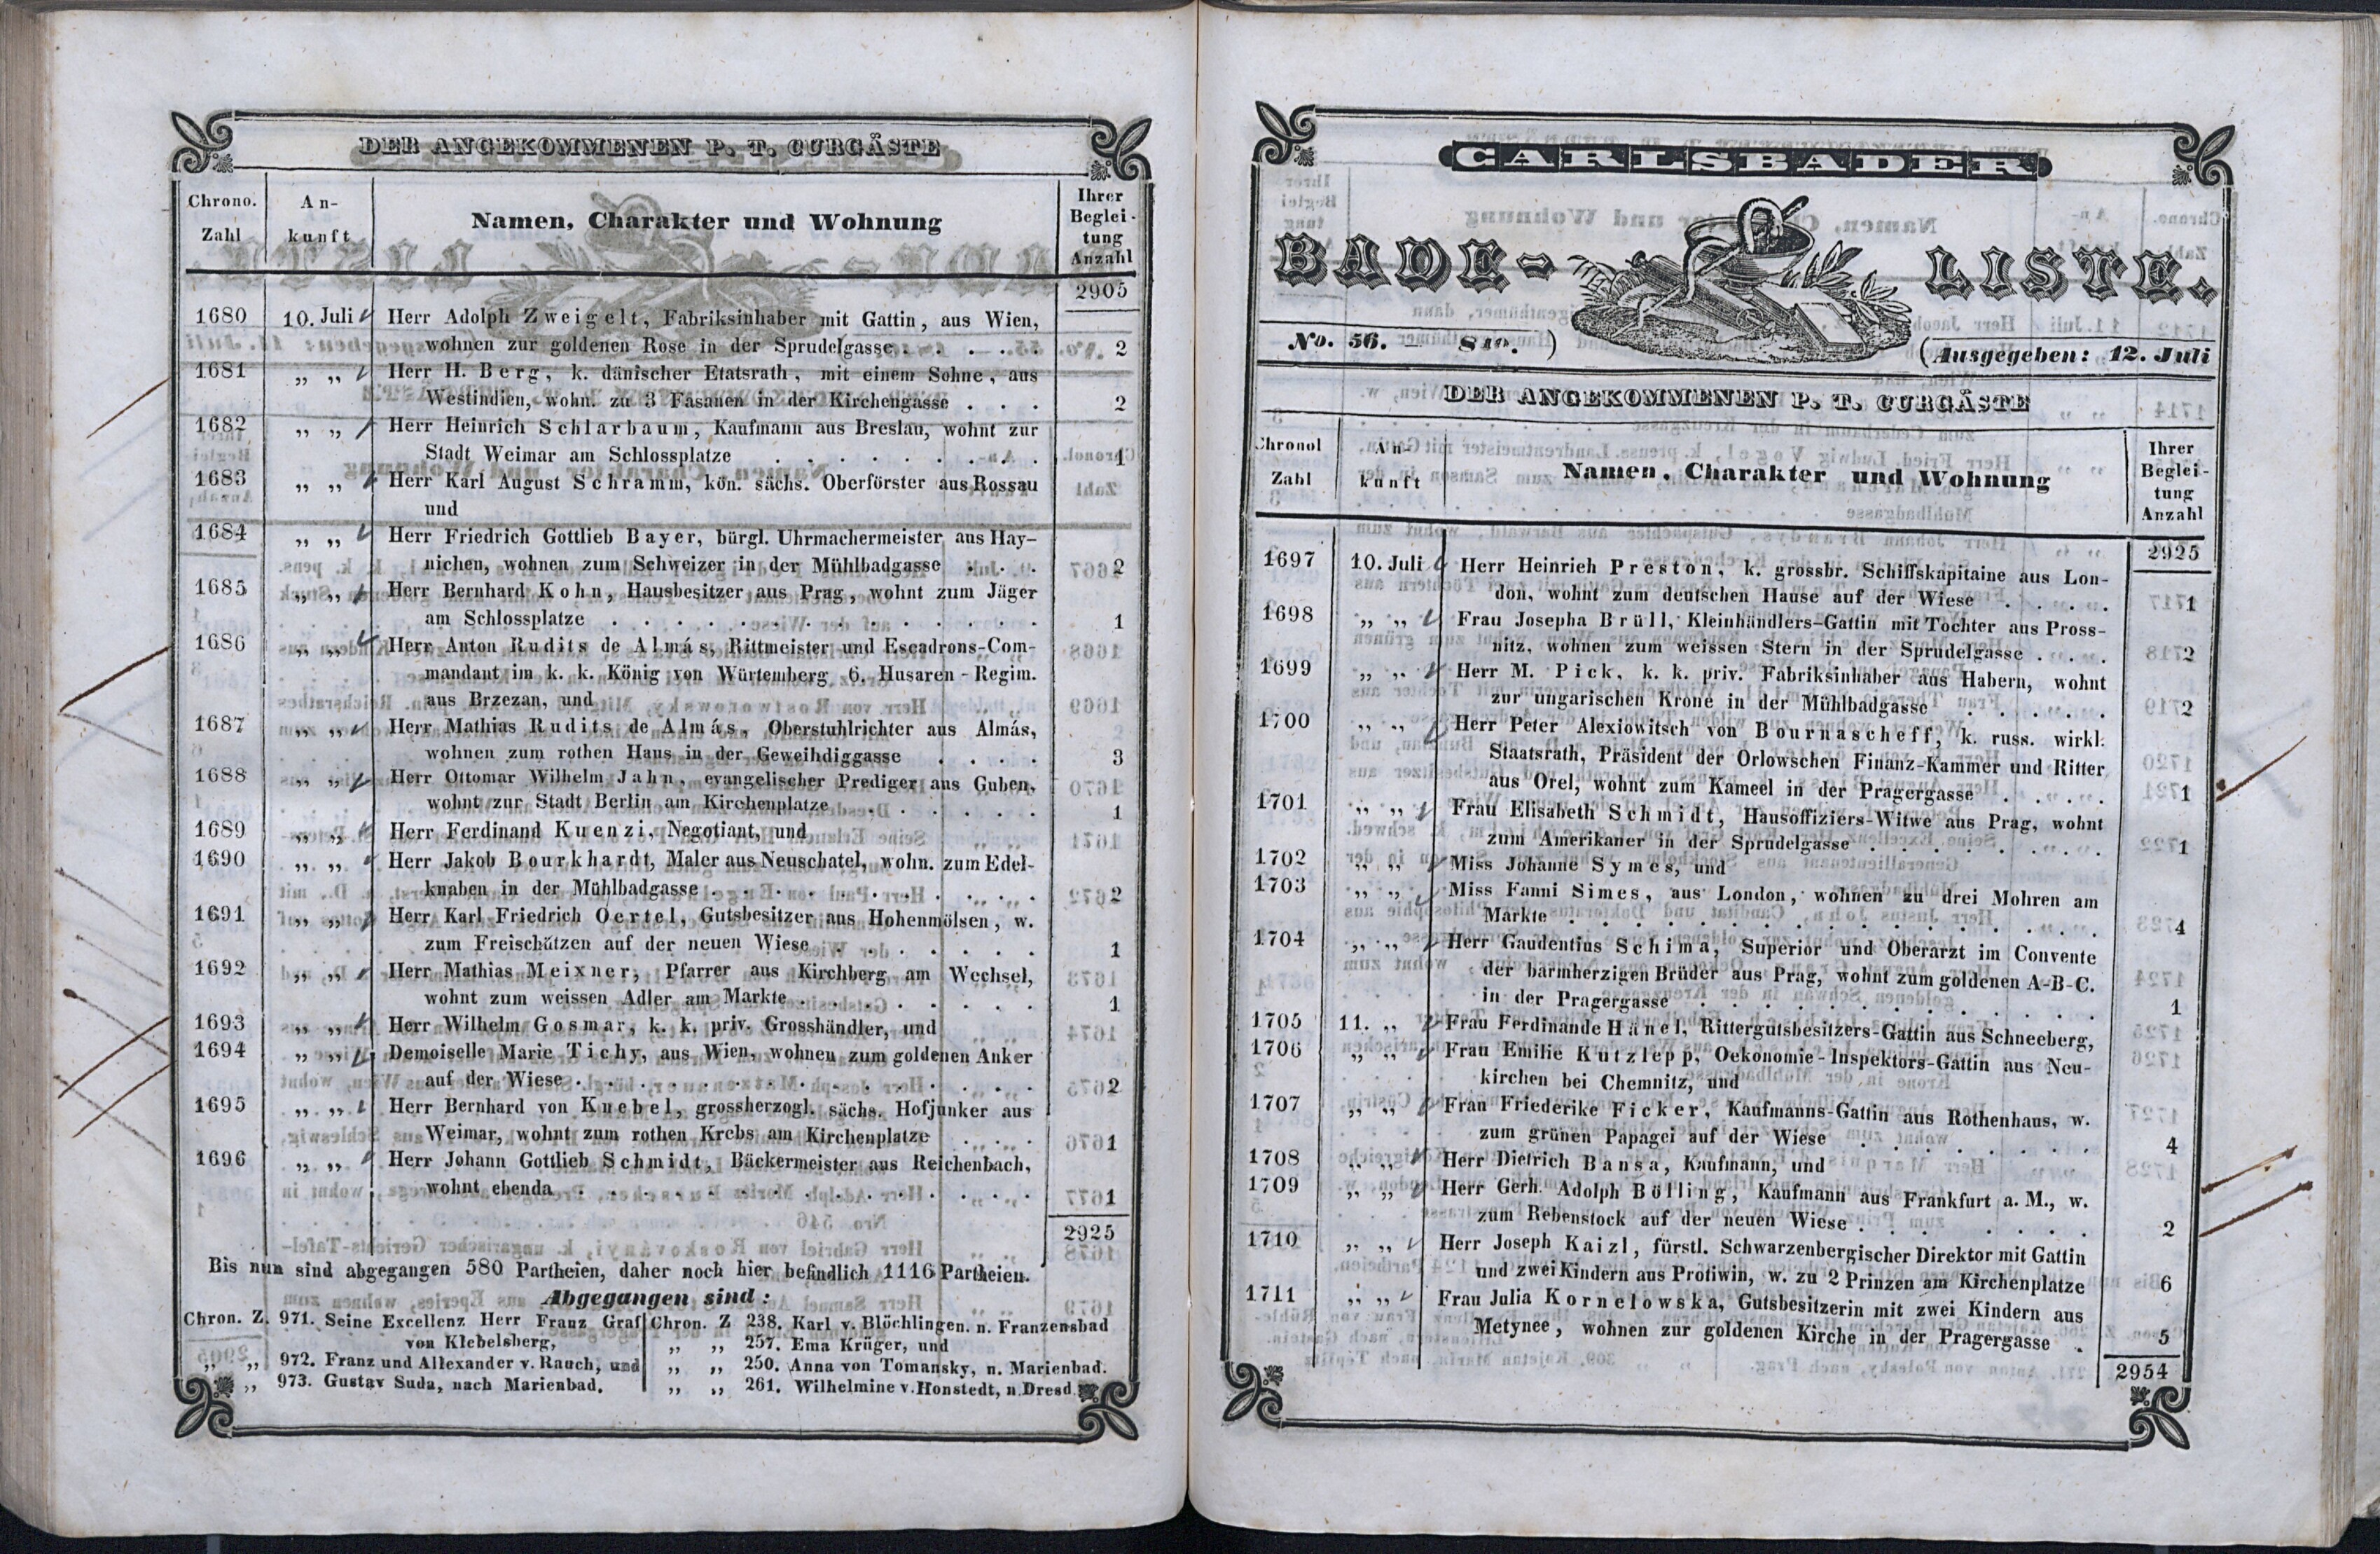 DER ANGEKOMMENEN P. T. CURGÄSTE
Chrono. Zahl
An-kunft
Namen, Charakter und Wohnung
Ihrer Beglei-tung Anzahl
2905
1680 10. Juli Herr Adolph Zweigelt, Fabriksinhaber mit Gattin, aus Wien,
wohnen zur goldenen Rose in der Sprudelgasse . . . . . 2
1681 „ „ Herr H. Berg, k. dänischer Etatsrath, mit einem Sohne, aus
Westindien, wohn. zu 3 Fasanen in der Kirchengasse . . . 2
1682 „ „ Herr Heinrich Schlarbaum, Kaufmann aus Breslau, wohnt zur
Stadt Weimar am Schlossplatze . . . . . . . . . 1
1683 „ „ Herr Karl August Schramm, kön. sächs. Oberförster aus Rossau
und
1684 „ „ Herr Friedrich Gottlieb Bayer, bürgl. Uhrmachermeister aus Hay-
nichen, wohnen zum Schweizer in der Mühlbadgasse . . . 2
1685 „ „ Herr Bernhard Kohn, Hausbesitzer aus Prag, wohnt zum Jäger
am Schlossplatze . . . . . . . . . . . . . . 1
1686 „ „ Herr Anton Rudits de Almás, Rittmeister und Escadrons-Com-
mandant im k. k. König von Würtemberg 6. Husaren-Regim.
aus Brzezan, und
1687 „ „ Herr Mathias Rudits de Almás, Oberstuhlrichter aus Almás,
wohnen zum rothen Haus in der Geweihdiggasse . . . . 3
1688 „ „ Herr Ottomar Wilhelm Jahn, evangelischer Prediger aus Guben,
wohnt zur Stadt Berlin am Kirchenplatze . . . . . . 1
1689 „ „ Herr Ferdinand Kuenzi, Negotiant, und
1690 „ „ Herr Jakob Bourkhardt, Maler aus Neuschatel, wohn. zum Edel-
knaben in der Mühlbadgasse . . . . . . . . . . . 2
1691 „ „ Herr Karl Friedrich Oertel, Gutsbesitzer aus Hohenmölsen, w.
zum Freischützen auf der neuen Wiese . . . . . . . 1
1692 „ „ Herr Mathias Meixner, Pfarrer aus Kirchberg am Wechsel,
wohnt zum weissen Adler am Markte . . . . . . . . 1
1693 „ „ Herr Wilhelm Gosmar, k. k. priv. Grosshändler, und
1694 „ „ Demoiselle Marie Tichy, aus Wien, wohnen zum goldenen Anker
auf der Wiese . . . . . . . . . . . . . . . 2
1695 „ „ Herr Bernhard von Kuebel, grossherzogl. sächs. Hofjunker aus
Weimar, wohnt zum rothen Krebs am Kirchenplatze . . . 1
1696 „ „ Herr Johann Gottlieb Schmidt, Bäckermeister aus Reichenbach,
wohnt ebenda . . . . . . . . . . . . . . . 1
2925
Bis nun sind abgegangen 580 Partheien, daher noch hier befindlich 1116 Partheien.
Abgegangen sind:
Chron. Z. 971. Seine Excellenz Herr Franz Graf
von Klebelsberg,
„ „ 972. Franz und Allexander v. Rauch, und
„ 973. Gustav Suda, nach Marienbad.
Chron. Z 238. Karl v. Blöchlingen. n. Franzensbad
„ „ 257. Ema Krüger, und
„ „ 250. Anna von Tomansky, n. Marienbad.
„ „ 261. Wilhelmine v. Honstedt, n. Dresd.
CARLSBADER
BADE-LISTE.
No. 56. — 
(Ausgegeben: 12. Juli
DER ANGEKOMMENEN P. T. CURGÄSTE
Chronol Zahl
An-kunft
Namen, Charakter und Wohnung
Ihrer Beglei-tung Anzahl
2925
1697 10. Juli Herr Heinrich Preston, k. grossbr. Schiffskapitaine aus Lon-
don, wohnt zum deutschen Hause auf der Wiese . . . . 1
1698 „ „ Frau Josepha Brüll, Kleinhändlers-Gattin mit Tochter aus Pross-
nitz, wohnen zum weissen Stern in der Sprudelgasse . . . 2
1699 „ „ Herr M. Pick, k. k. priv. Fabriksinhaber aus Habern, wohnt
zur ungarischen Krone in der Mühlbadgasse . . . . . 2
1700 „ „ Herr Peter Alexiowitsch von Bournascheff, k. russ. wirkl.
Staatsrath, Präsident der Orlowschen Finanz-Kammer und Ritter
aus Orel, wohnt zum Kameel in der Pragergasse . . . . 1
1701 „ „ Frau Elisabeth Schmidt, Hausoffiziers-Witwe aus Prag, wohnt
zum Amerikaner in der Sprudelgasse . . . . . . . . 1
1702 „ „ Miss Johanne Symes, und
1703 „ „ Miss Fanni Simes, aus London, wohnen zu drei Mohren am
Markte . . . . . . . . . . . . . . . . . 4
1704 „ „ Herr Gaudentius Schima, Superior und Oberarzt im Convente
der barmherzigen Brüder aus Prag, wohnt zum goldenen A-B-C.
in der Pragergasse . . . . . . . . . . . . . 1
1705 11. „ Frau Ferdinande Hänel, Rittergutsbesitzers-Gattin aus Schneeberg,
1706 „ „ Frau Emilie Kutzlepp, Oekonomie-Inspektors-Gattin aus Neu-
kirchen bei Chemnitz, und
1707 „ „ Frau Friederike Ficker, Kaufmanns-Gattin aus Rothenhaus, w.
zum grünen Papagei auf der Wiese . . . . . . . . 4
1708 „ „ Herr Dietrich Bansa, Kaufmann, und
1709 „ „ Herr Gerh. Adolph Bölling, Kaufmann aus Frankfurt a. M., w.
zum Rebenstock auf der neuen Wiese . . . . . . . 2
1710 „ „ Herr Joseph Kaizl, fürstl. Schwarzenbergischer Direktor mit Gattin
und zwei Kindern aus Protiwin, w. zu 2 Prinzen am Kirchenplatze 6
1711 „ „ Frau Julia Kornelowska, Gutsbesitzerin mit zwei Kindern aus
Metynee, wohnen zur goldenen Kirche in der Pragergasse . 5
2954